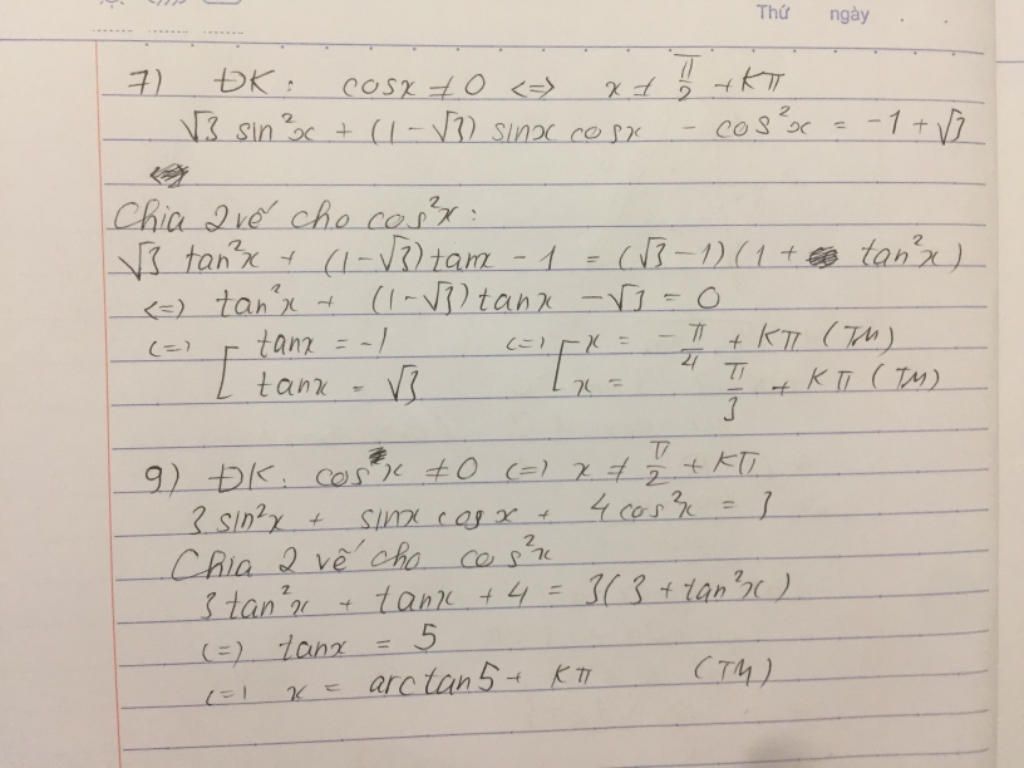 Thứ ngày . .
7) ĐK: cosx ≠ 0 <=> x ≠ π/2 + Kπ
√3 sin²x + (1-√3) sinx cosx - cos²x = -1 + √3
Chia 2 vế cho cos²x:
√3 tan²x + (1-√3) tanx - 1 = (√3-1)(1 + tan²x)
<=> tan²x + (1-√3) tanx - √3 = 0
<=> [ tanx = -1 <=> [ x = -π/4 + Kπ (TM)
tanx = √3 x = π/3 + Kπ (TM)
9) ĐK: cos x ≠ 0 <=> x ≠ π/2 + Kπ
3 sin²x + sinx cosx + 4cos²x = 3
Chia 2 vế cho cos²x
3 tan²x + tanx + 4 = 3(3 + tan²x)
<=> tanx = 5
<=> x = arctan5 + Kπ (TM)